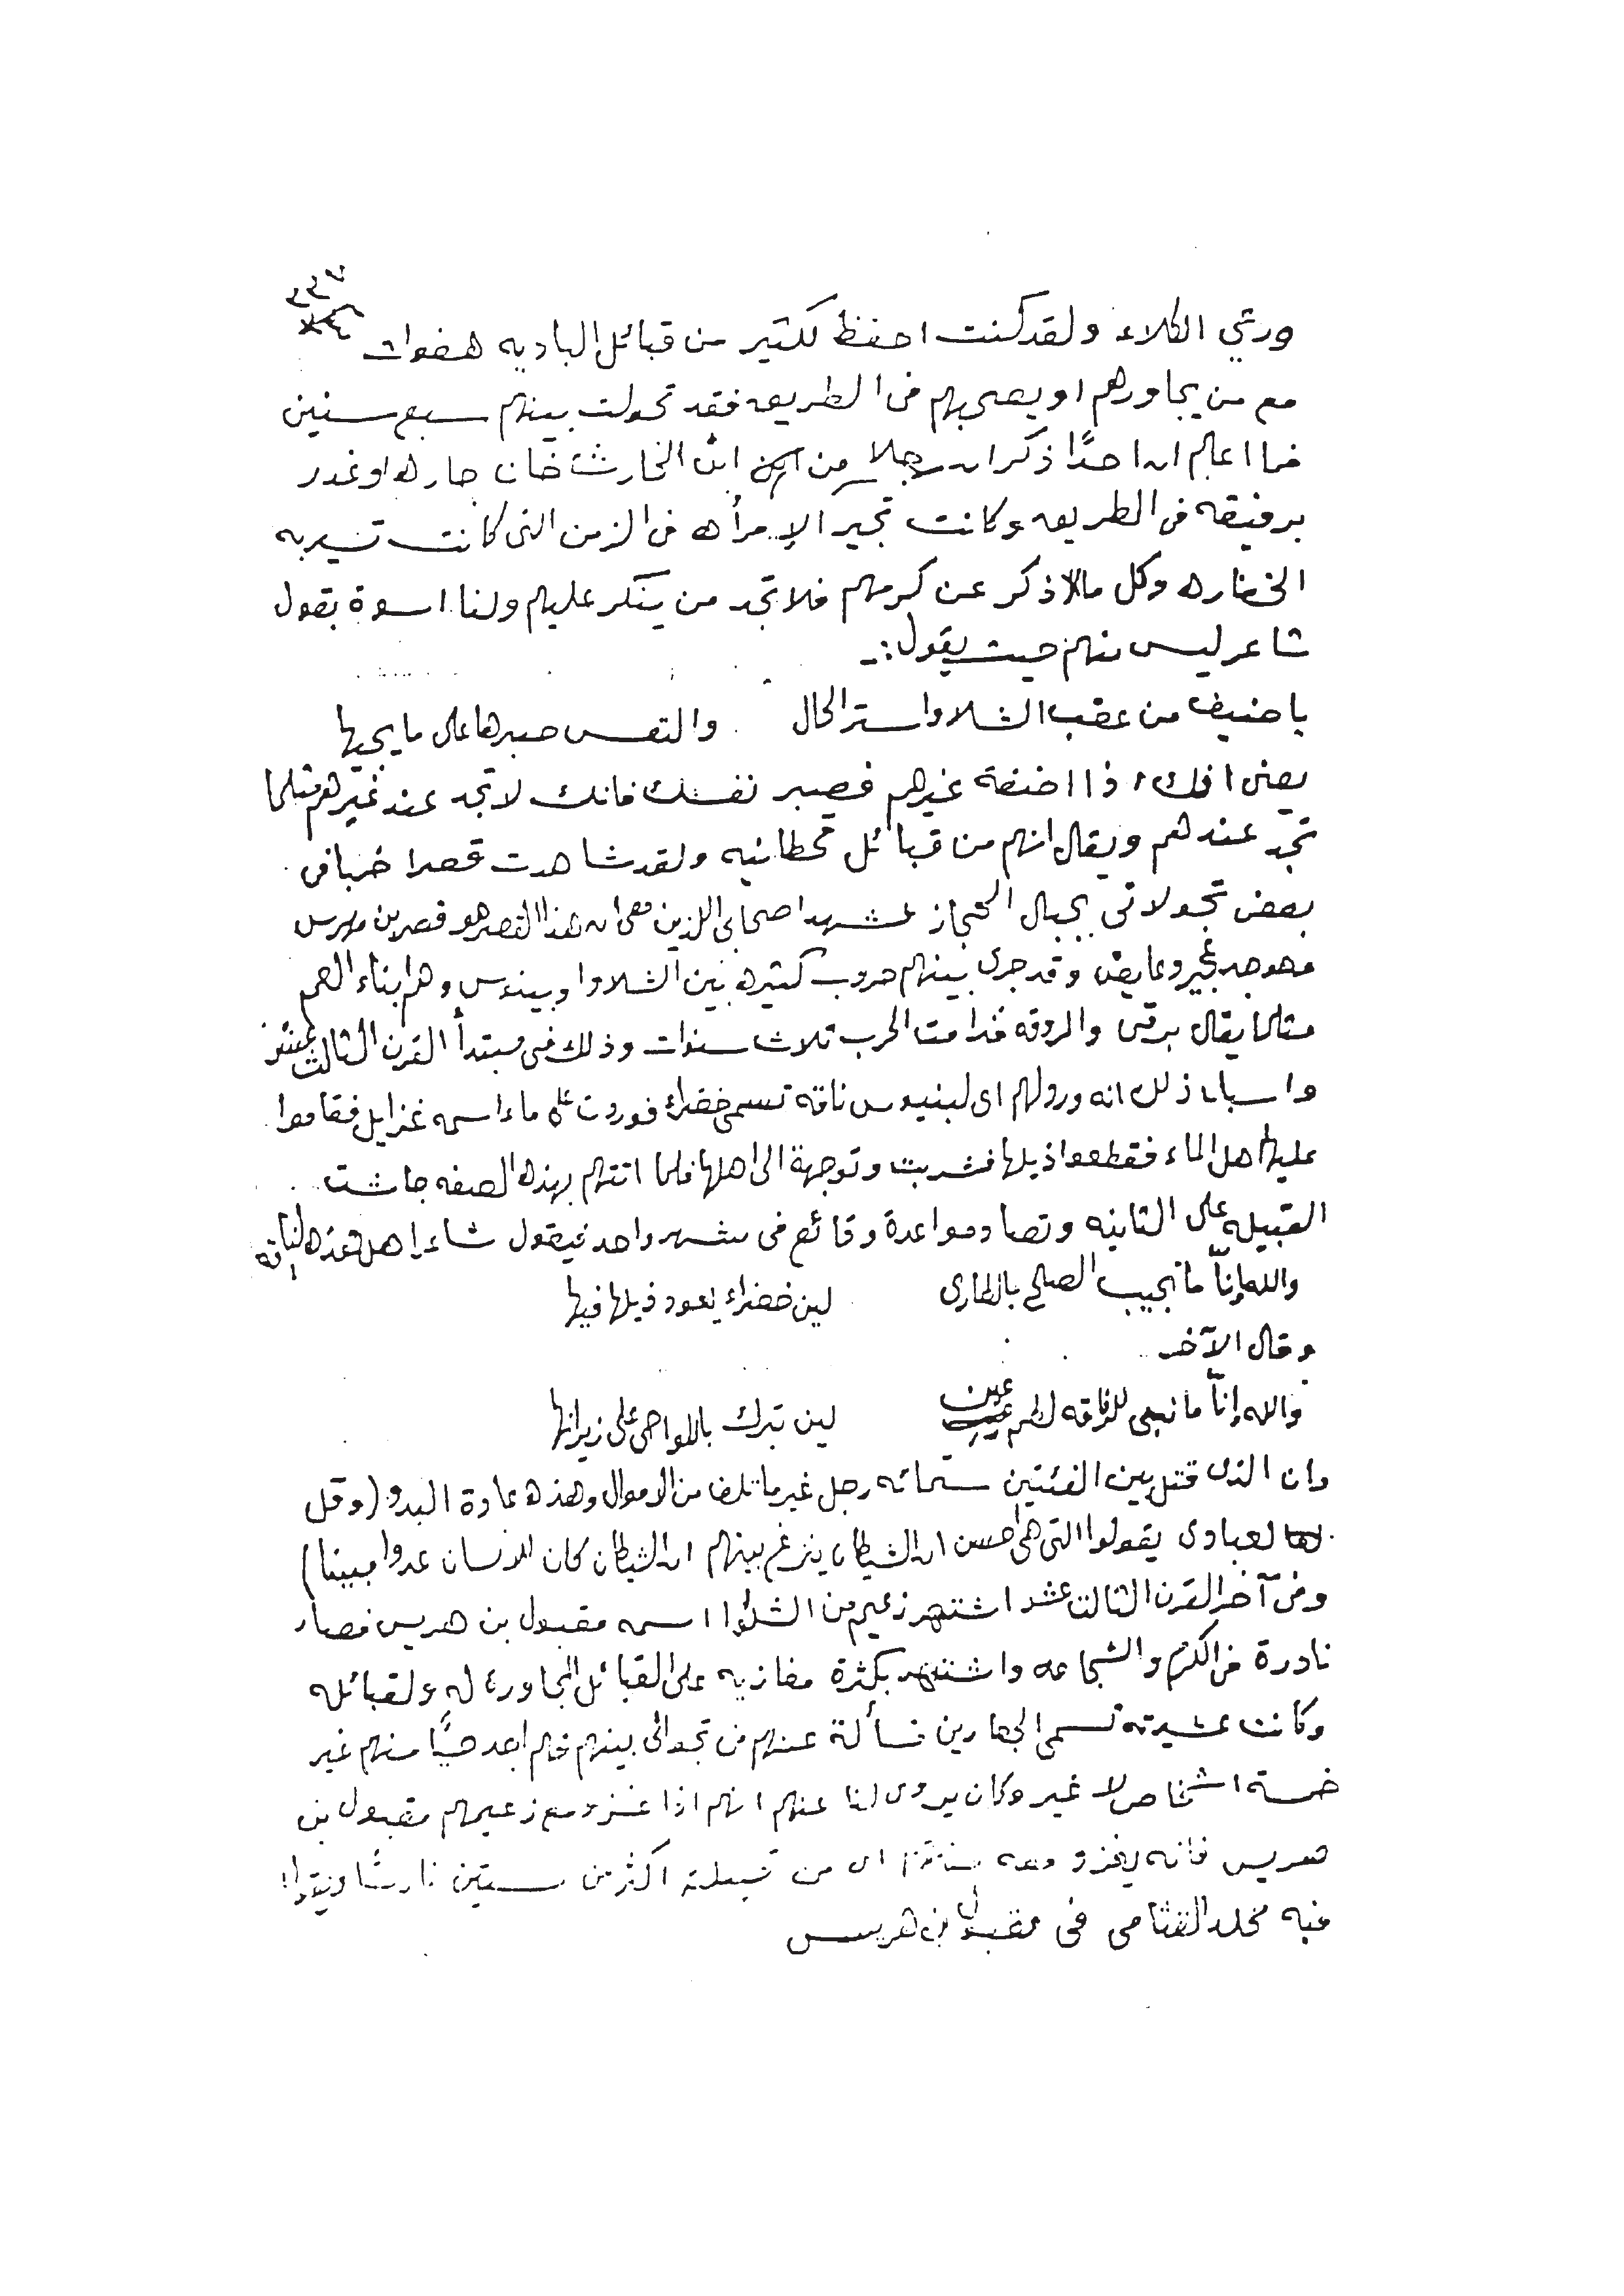 ٢٢٧
ورثي الكلاء ولقد كنت احفظ لكثير من قبائل الباديه هفوات
مع من يجاورهم او يصحبهم في الطريق فقد تجولت بينهم سبع سنين
فما اعلم ان احدًا ذكر ان رجلا من ابن الحارث خان جاره او غدر
برفيقه في الطريق وكانت تجير الإمرأه في الزمن التي كانت تسير به
الخفاره وكل مالا ذكر عن كرمهم فلا تجد من ينكر عليهم ولنا اسوة بقول
شاعر ليس منهم حيث يقول :-
ياضيف من عقب الشلاوا ستر الحال والتعس صبرها على ما يجيها
يعني انك اذا اضفة غيرهم فصبر نفسك فانك لا تجد عند غيرهم مثلما
تجد عندهم ويقال انهم من قبائل قحطانيه ولقد شاهدت قصرا خربا في
بعض تجولاتي بجبال الحجاز شهد اصحابي اللذين معي ان هذا القصر هو قصر بن
وقد جرى بينهم حروب كثيره بين الشلاوا وبينوس وهم ابناء العم
مثلما يقال برقى والروقه فدامت الحرب ثلاث سنوات وذلك في مبتدأ القرن الثالث عشر
واسباب ذلك انه ورد لهم اى لبنيوس ناقه تسمى خضراء فوردت على ماء اسمه غزايل فقاموا
عليها اهل الماء فقطعوا ذيلها فشربت وتوجهة الى اهلها فلما اتتهم بهذه الصفه جاشت
القبيله على الثانيه وتصادموا عدة وقائع في شهر واحد فيقول شاعر اهل هذه الناقه
والله إنّا ما نجيب الصلح بالطاري لين خضراء يعود ذيلها فيها
وقال الآخر
والله إنّا ما نبي للناقه لطم عين لين تبرك باللواحي على زيرانها
وان الذى قتل بين الفئتين ستمائه رجل غير ما تلف من الاموال وهذه عادة البدو (وقل
لعبادى يقولوا التي هي احسن ان الشيطان ينزغ بينهم ان الشيطان كان للانسان عدوا مبينا)
وفي آخر القرن الثالث عشر اشتهر زعيم من الشلاوا اسمه مقبول بن هريس فصار
نادرة في الكرم والشجاعه واشتهر بكثرة مغازيه على القبائل المجاورة له ولقبائله
وكانت عشيرته تسمى الجعارين فسألة عنهم في تجوالي بينهم فلم اجد حيًّا منهم غير
خمسة اشخاص لا غير وكان يروى لنا عنهم انهم اذا غزو مع زعيمهم مقبول بن
هريس فانه يغزو معه اى من قبيلته اكثر من ستين فارسًا ويقول
فيه مخلد القثامي في مقبول بن هريس